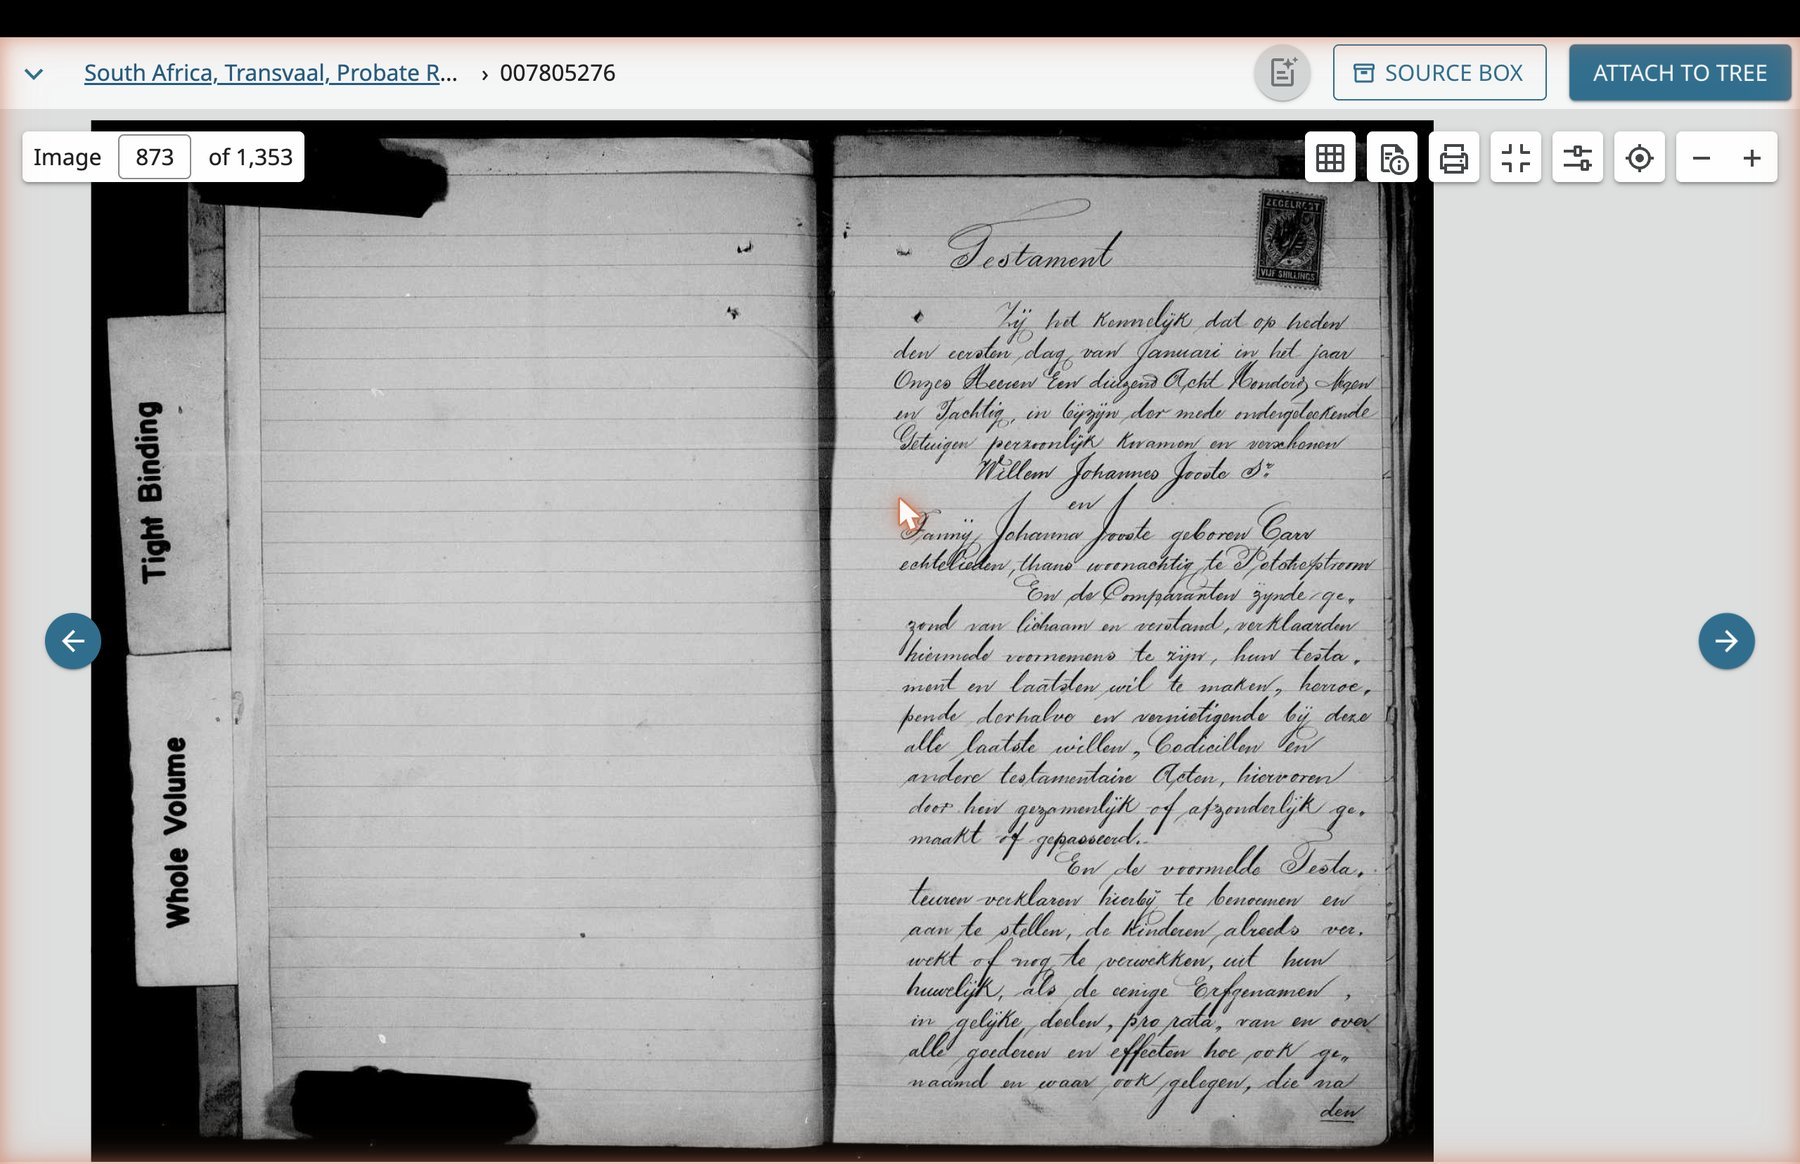 South Africa, Transvaal, Probate R... › 007805276
SOURCE BOX
ATTACH TO TREE
Image 873 of 1,353
Tight Binding
Whole Volume
ZEGELREGT
VIJF SHILLINGS
Testament
Zij het kennelijk dat op heden
den eersten dag van Januari in het jaar
Onzes Heeren Een duizend Acht Honderd Negen
en Tachtig, in bijzijn der mede ondergeteekende
Getuigen perzoonlijk kwamen en verschenen
Willem Johannes Jooste Sr
en
Fannij Johanna Jooste geboren Carr
echtelieden, thans woonachtig te Potchefstroom
En de Comparanten zynde ge„
zond van lichaam en verstand, verklaarden
hiermede voornemens te zijn, hun testa„
ment en laatsten wil te maken, herroe„
pende derhalve en vernietigende bij deze
alle laatste willen, Codicillen en
andere testamentaire Acten, hiervoren
door hen gezamenlijk of afzonderlijk ge„
maakt of gepasseerd.
En de voormelde Testa„
teuren verklaren hierbij te benoemen en
aan te stellen, de kinderen alreeds ver„
wekt of nog te verwekken, uit hun
huwelijk, als de eenige Erfgenamen,
in gelijke deelen, pro rata, van en over
alle goederen en effecten hoe ook ge„
naamd en waar ook gelegen, die na
den